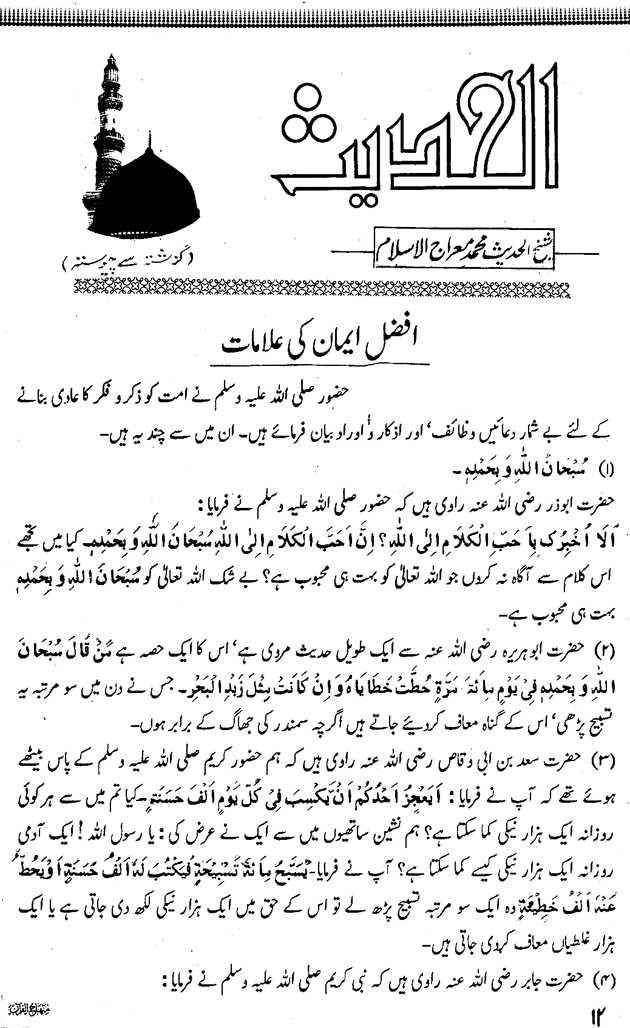 الحدیث
شیخ الحدیث محمد معراج الاسلام
(گزشتہ سے پیوستہ)
افضل ایمان کی علامات
حضور صلی اللہ علیہ وسلم نے امت کو ذکر و فکر کا عادی بنانے
کے لئے بے شمار دعائیں وظائف‘ اور اذکار و اوراد بیان فرمائے ہیں۔ ان میں سے چند یہ ہیں۔
(۱) سُبْحَانَ اللّٰهِ وَ بِحَمْدِهٖ۔
حضرت ابوذر رضی اللہ عنہ راوی ہیں کہ حضور صلی اللہ علیہ وسلم نے فرمایا :
اَلَا اُخْبِرُکَ بِاَحَبِّ الْکَلَامِ اِلَی اللّٰهِ؟ اِنَّ اَحَبَّ الْکَلَامِ اِلَی اللّٰهِ سُبْحَانَ اللّٰهِ وَ بِحَمْدِهٖ۔ کیا میں تجھے
اس کلام سے آگاہ نہ کروں جو اللہ تعالیٰ کو بہت ہی محبوب ہے؟ بے شک اللہ تعالیٰ کو سُبْحَانَ اللّٰهِ وَ بِحَمْدِهٖ
بہت ہی محبوب ہے۔
(۲) حضرت ابو ہریرہ رضی اللہ عنہ سے ایک طویل حدیث مروی ہے‘ اس کا ایک حصہ ہے مَنْ قَالَ سُبْحَانَ
اللّٰهِ وَ بِحَمْدِهٖ فِیْ یَوْمٍ مِائَةَ مَرَّةٍ حُطَّتْ خَطَایَاهُ وَ اِنْ کَانَتْ مِثْلَ زَبَدِ الْبَحْرِ۔ جس نے دن میں سو مرتبہ یہ
تسبیح پڑھی‘ اس کے گناہ معاف کردیئے جاتے ہیں اگرچہ سمندر کی جھاگ کے برابر ہوں۔
(۳) حضرت سعد بن ابی وقاص رضی اللہ عنہ راوی ہیں کہ ہم حضور کریم صلی اللہ علیہ وسلم کے پاس بیٹھے
ہوئے تھے کہ آپ نے فرمایا : اَیَعْجِزُ اَحَدُکُمْ اَنْ یَّکْسِبَ فِیْ کُلِّ یَوْمٍ اَلْفَ حَسَنَةٍ۔ کیا تم میں سے ہر کوئی
روزانہ ایک ہزار نیکی کما سکتا ہے؟ ہم نشین ساتھیوں میں سے ایک نے عرض کی : یا رسول اللہ ! ایک آدمی
روزانہ ایک ہزار نیکی کیسے کما سکتا ہے؟ آپ نے فرمایا۔ یُسَبِّحُ مِائَةَ تَسْبِیْحَةٍ فَیُکْتَبُ لَهٗ اَلْفُ حَسَنَةٍ اَوْ یُحَطُّ
عَنْهُ اَلْفُ خَطِیْئَةٍ وہ ایک سو مرتبہ تسبیح پڑھ لے تو اس کے حق میں ایک ہزار نیکی لکھ دی جاتی ہے یا ایک
ہزار غلطیاں معاف کردی جاتی ہیں۔
(۴) حضرت جابر رضی اللہ عنہ راوی ہیں کہ نبی کریم صلی اللہ علیہ وسلم نے فرمایا :
۱۲
منہاج القرآن